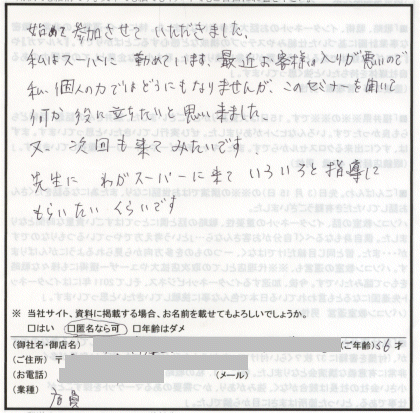 始めて参加させていただきました。
私はスーパーに勤めています。最近お客様の入りが悪いので
私、個人の力ではどうにもなりませんが、このセミナーを聞いて
何か役に立ちたいと思い来ました。
又、次回も来てみたいです。
先生に わがスーパーに来て いろいろと指導して
もらいたいくらいです
※ 当社サイト、資料に掲載する場合、お名前を載せてもよろしいでしょうか。
□はい □匿名なら可 □年齢はダメ
(御社名・御店名) (ご年齢) 56才
(ご住所) 〒
(お電話) (メール)
(業種) 店員